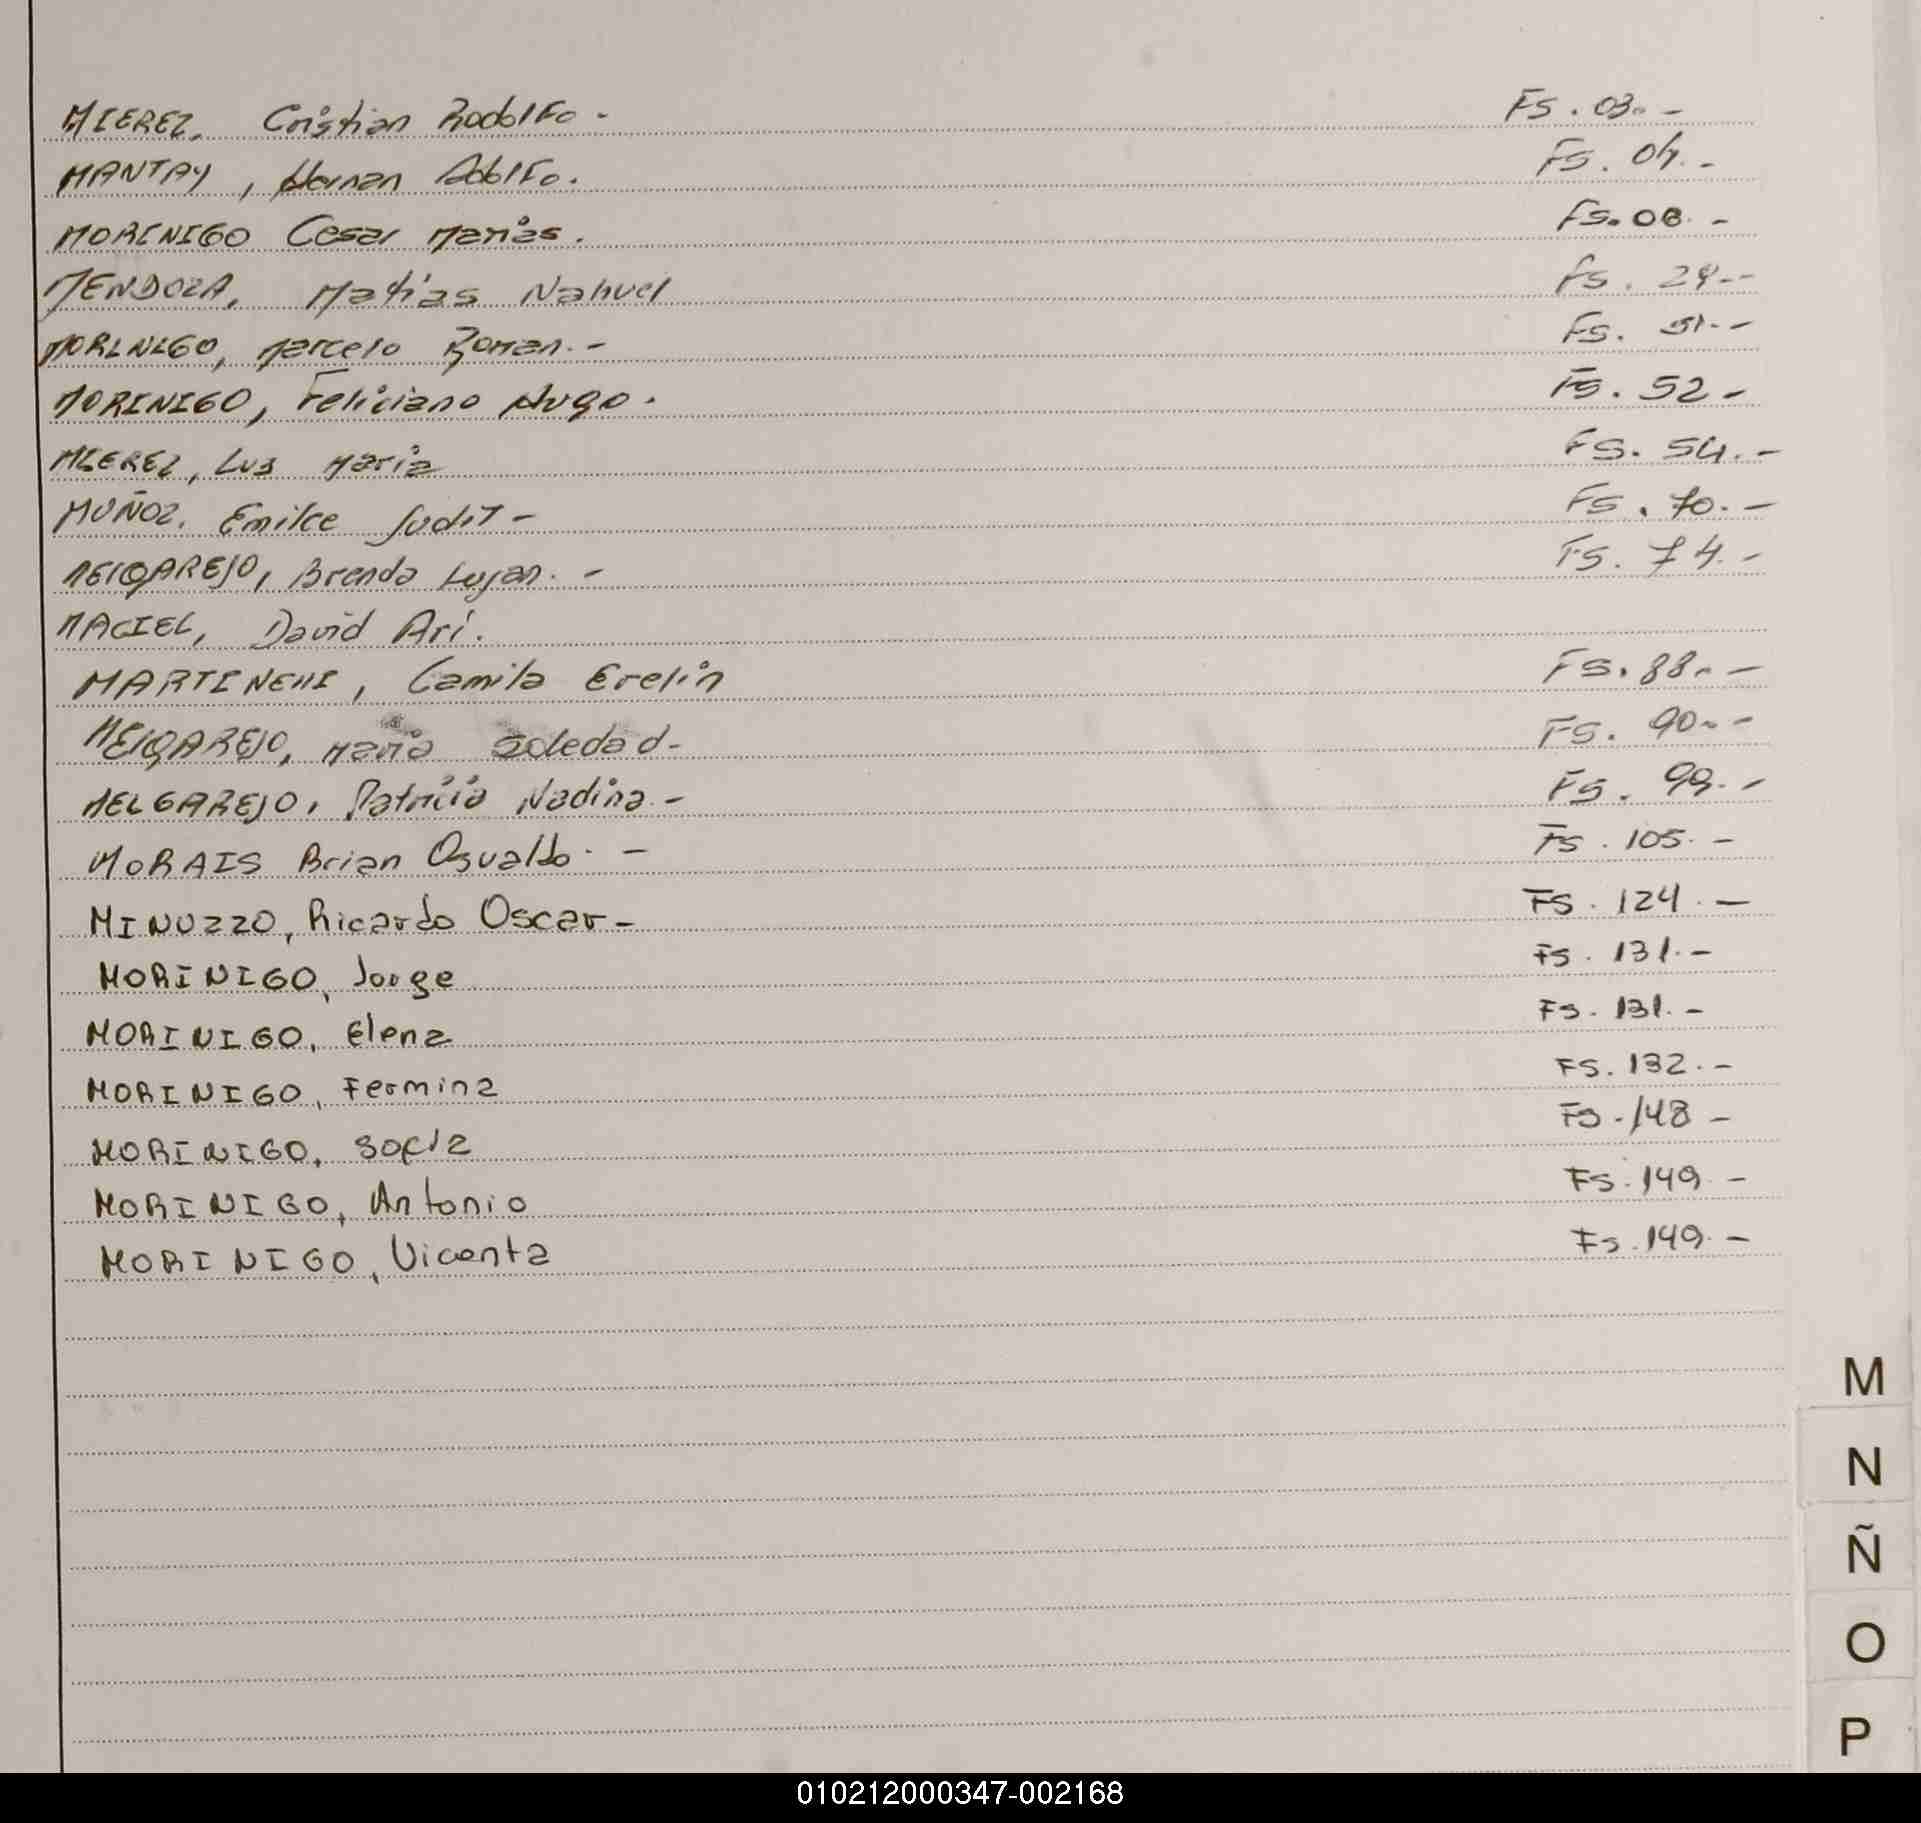 MIEREZ, Cristian Rodolfo.- Fs. 03.-
MANTAY, Hernan Adolfo. Fs. 04.-
MORINIGO Cesar Matias. Fs. 06.-
MENDOZA, Matias Nahuel Fs. 24.-
MORINIGO, Marcelo Roman.- Fs. 51.-
MORINIGO, Feliciano Hugo. Fs. 52-
MIEREZ, Luz Maria Fs. 54.-
MUÑOZ, Emilce Judit- Fs. 70.-
MElGAREJO, Brenda Lujan.- Fs. 74.-
MACIEL, David Ari.
MARTINEllI, Camila Evelin Fs. 88.-
MElGAREJO, Maria Soledad- Fs. 90.-
MELGAREJO, Patricia Nadina.- Fs. 99.-
MORAIS Brian Osvaldo.- Fs. 105.-
MINUZZO, Ricardo Oscar- Fs. 124.-
MORINIGO, Jorge Fs. 131.-
MORINIGO, Elena Fs. 131.-
MORINIGO, Fermina Fs. 132.-
MORINIGO, Sofia Fs. 148-
MORINIGO, Antonio Fs. 149.-
MORINIGO, Vicenta Fs. 149.-
M
N
Ñ
O
P
010212000347-002168